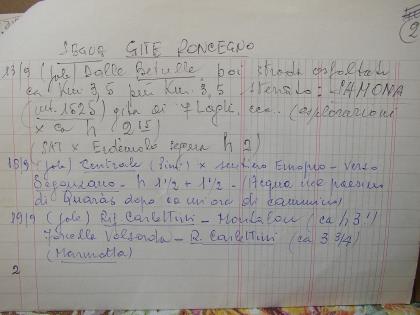 2
SEGUE GITE RONCEGNO
13/9 (sole) Dalle Betulle, poi strada asfaltata
ca Km 3,5 più Km. 3,5 sterrato: SAMONA
(mt. 1625) gita ai 7 Laghi, ecc.. (esplorazioni
x ca h 2 15)
(SAT x Erdemolo segna h 2)
18/9 (sole) Centrale (Pine) x sentiero Europeo - Verso
Segonzano - h 1½ + 1½ - (Acqua nel paesino
di Quaras dopo ca un'ora di cammino)
19/9 (sole) Rif. Carlettini - Montalon (ca h 3!)
Forcella Valsorda - R. Carlettini (ca 3 3/4)
(Marmotta)
2